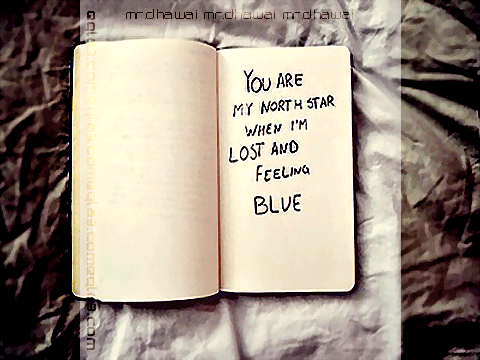 mr.dhawai mr.dhawai mr.dhawai
YOU ARE
MY NORTH STAR
WHEN I'M
LOST AND
FEELING
BLUE